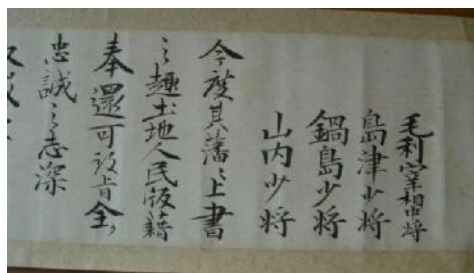 毛利宰相中将
島津少将
鍋島少将
山内少将
今度其藩々上書
之趣土地人民版籍
奉還可致旨全ク
忠誠之志深